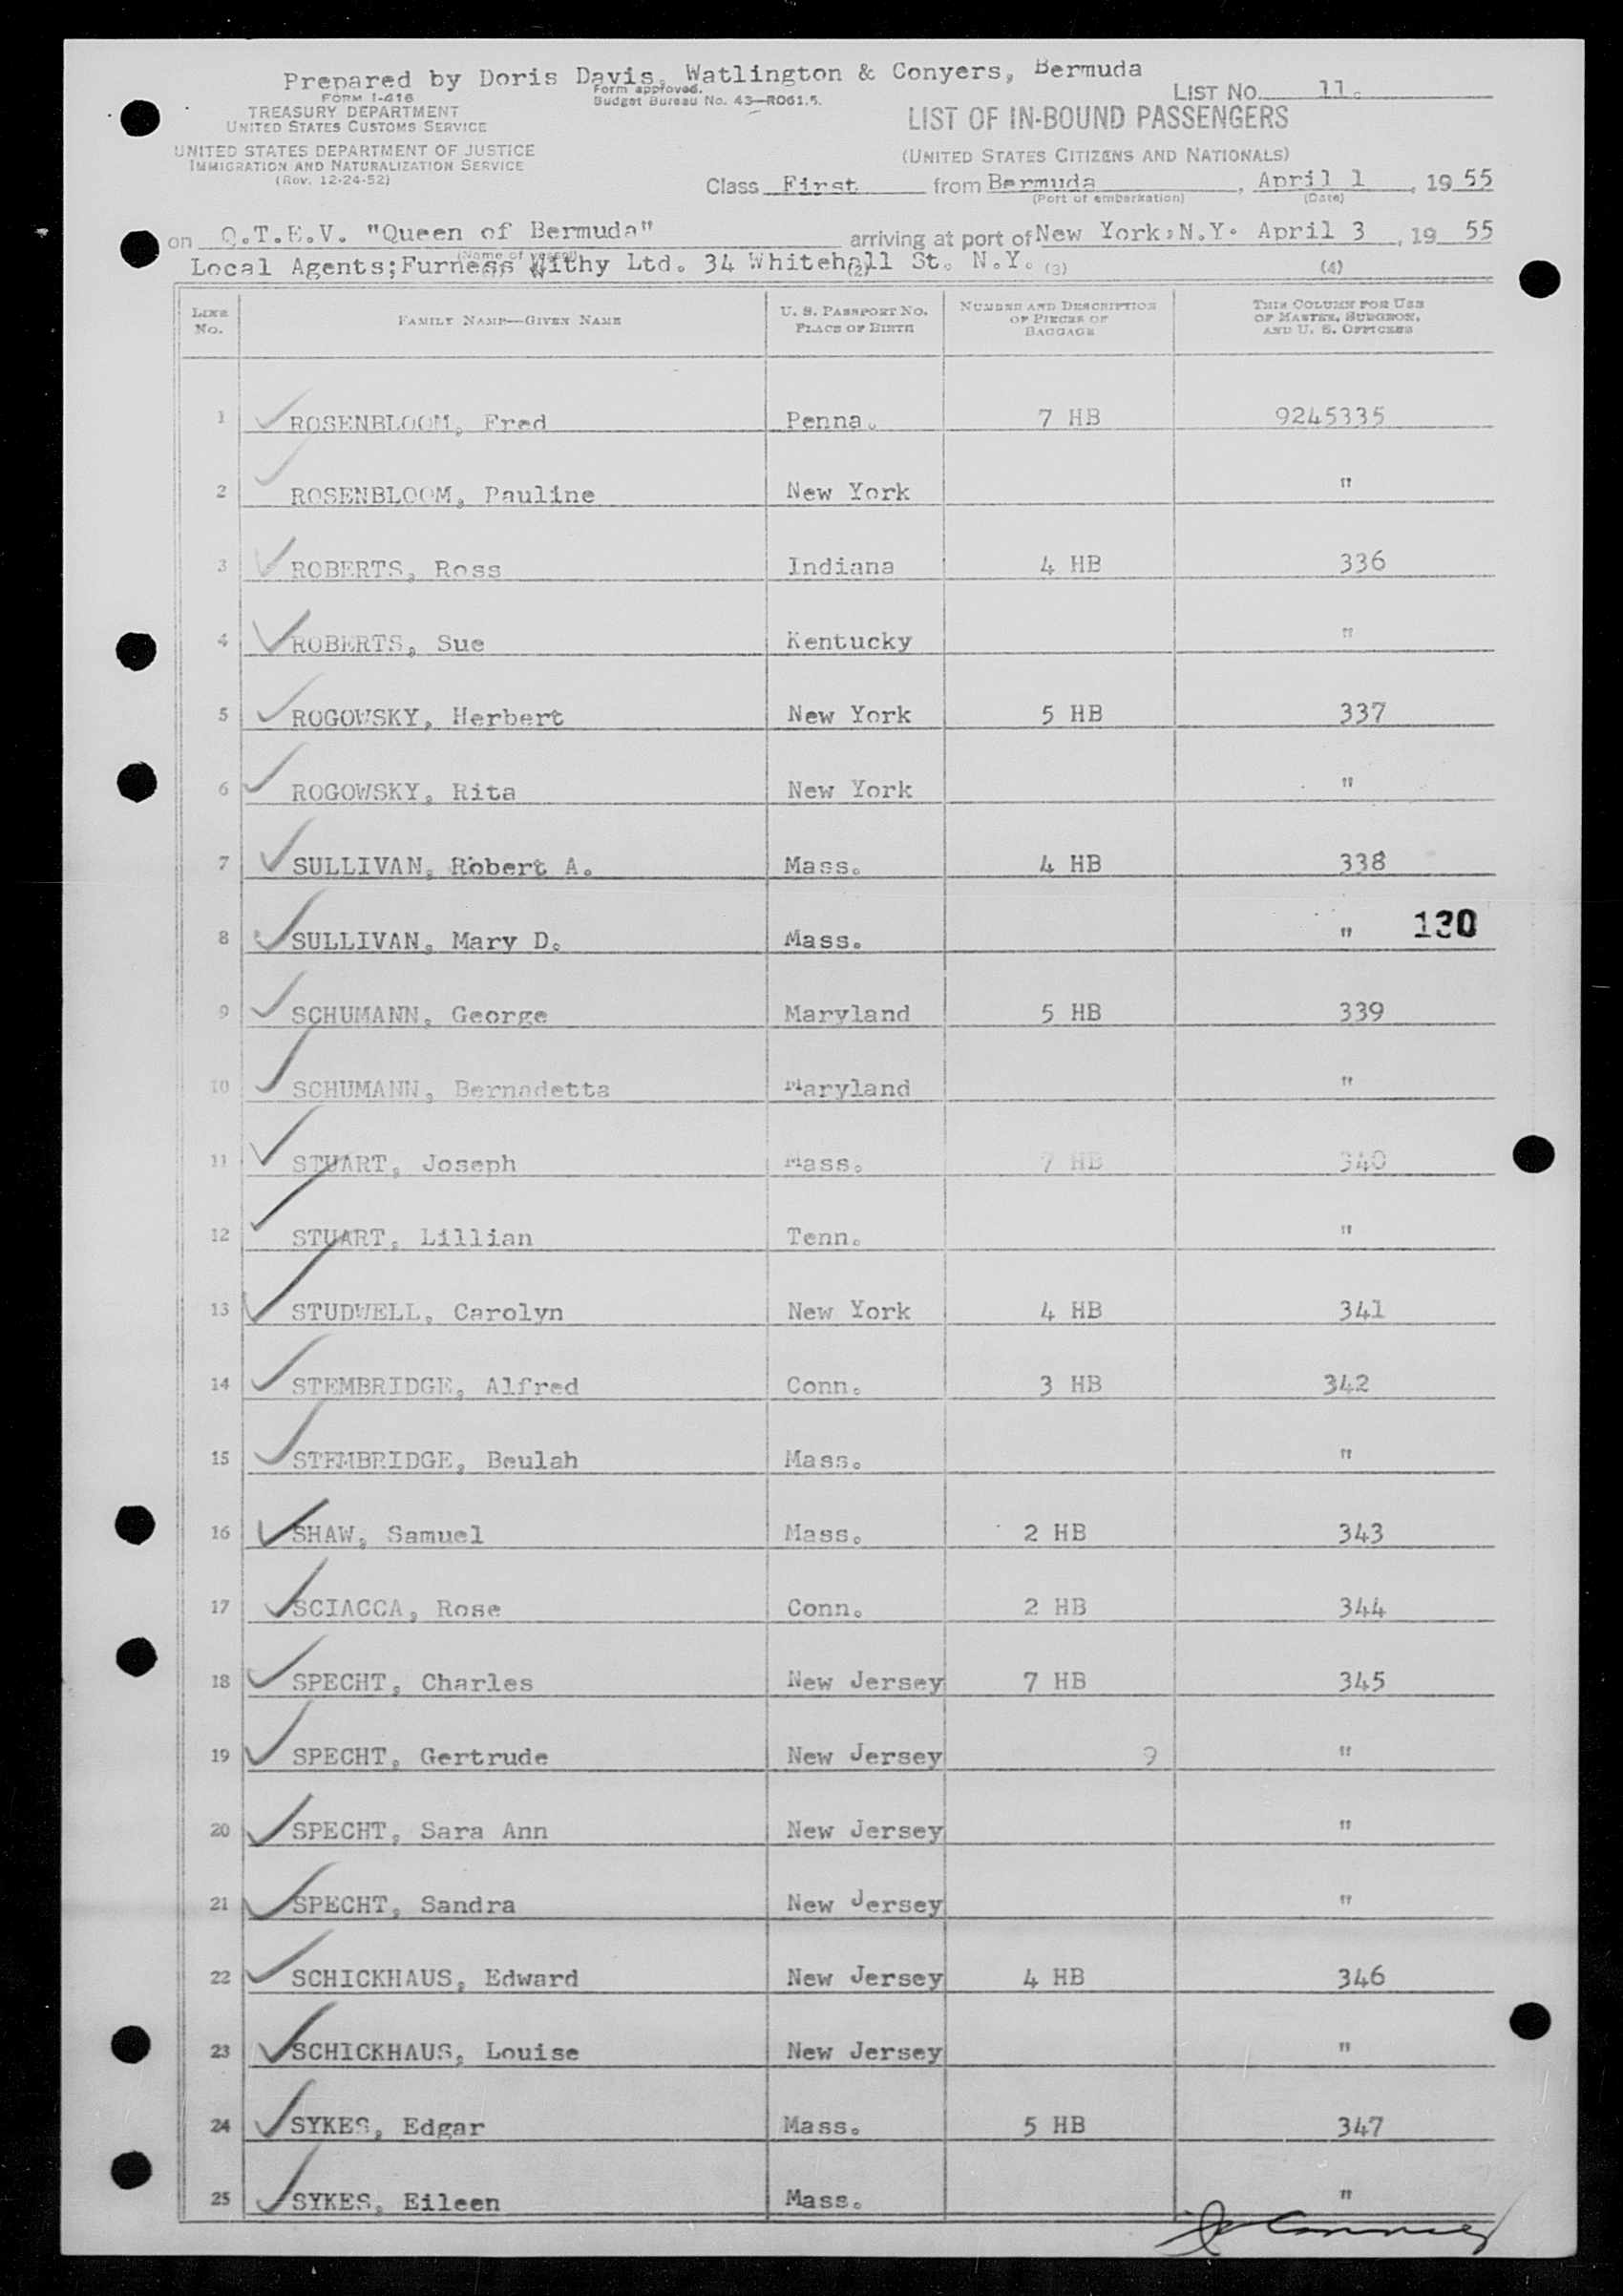 Prepared by Doris Davis, Watlington & Conyers, Bermuda
FORM I-418
TREASURY DEPARTMENT
UNITED STATES CUSTOMS SERVICE
UNITED STATES DEPARTMENT OF JUSTICE
IMMIGRATION AND NATURALIZATION SERVICE
(Rev. 12-24-52)
Form approved.
Budget Bureau No. 43-RO61.5.
LIST NO. 11.
LIST OF IN-BOUND PASSENGERS
(UNITED STATES CITIZENS AND NATIONALS)
Class First from Bermuda, April 1, 19 55
(Port of embarkation) (Date)
on Q.T.E.V. "Queen of Bermuda" arriving at port of New York, N.Y. April 3, 19 55
(Name of vessel)
Local Agents; Furness Withy Ltd. 34 Whitehall St. N.Y.
(2) (3) (4)
LINE No. FAMILY NAME—GIVEN NAME U. S. PASSPORT NO. PLACE OF BIRTH NUMBER AND DESCRIPTION OF PIECES OF BAGGAGE THIS COLUMN FOR USE OF MASTER, SURGEON, AND U. S. OFFICERS
1 ROSENBLOOM, Fred Penna. 7 HB 9245335
2 ROSENBLOOM, Pauline New York "
3 ROBERTS, Ross Indiana 4 HB 336
4 ROBERTS, Sue Kentucky "
5 ROGOWSKY, Herbert New York 5 HB 337
6 ROGOWSKY, Rita New York "
7 SULLIVAN, Robert A. Mass. 4 HB 338
8 SULLIVAN, Mary D. Mass. " 130
9 SCHUMANN, George Maryland 5 HB 339
10 SCHUMANN, Bernadetta Maryland "
11 STUART, Joseph Mass. 7 HB 340
12 STUART, Lillian Tenn. "
13 STUDWELL, Carolyn New York 4 HB 341
14 STEMBRIDGE, Alfred Conn. 3 HB 342
15 STEMBRIDGE, Beulah Mass. "
16 SHAW, Samuel Mass. 2 HB 343
17 SCIACCA, Rose Conn. 2 HB 344
18 SPECHT, Charles New Jersey 7 HB 345
19 SPECHT, Gertrude New Jersey 9 "
20 SPECHT, Sara Ann New Jersey "
21 SPECHT, Sandra New Jersey "
22 SCHICKHAUS, Edward New Jersey 4 HB 346
23 SCHICKHAUS, Louise New Jersey "
24 SYKES, Edgar Mass. 5 HB 347
25 SYKES, Eileen Mass. "